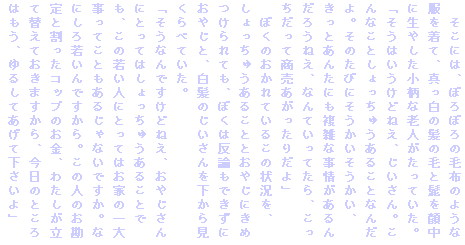 そこには、ぼろぼろの毛布のような
服を着て、真っ白の髪の毛と髭を顔中
に生やした小柄な老人がたっていた。
「そうはいうけどねえ、じいさん。こ
んなことしょっちゅうあることなんだ
よ。そのたびにそうかいそうかい、
きっとあんたにも複雑な事情があるん
だろうねえ、なんていってたら、こっ
ちだって商売あがったりだよ」
　ぼくのおかれているこの状況を、
しょっちゅうあることとおやじにきめ
つけられても、ぼくは反論もできずに
おやじと、白髪のじいさんを下から見
くらべていた。
「そうなんですけどねえ、おやじさん
にとってはしょっちゅうあることで
も、この若い人にとってはお家の一大
事ってこともあるじゃないですか。な
にしろ若いんですから。この人のお勘
定と割ったコップのお金、わたしが立
て替えておきますから、今日のところ
はもう、ゆるしてあげて下さいよ」